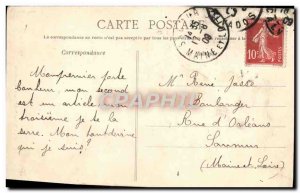 CARTE POSTALE
La correspondance au recto n'est pas acceptée par tous les pays
Correspondance
Mon premier porte
bonheur mon second
est un article mon
troisième je te la
serre. Mon tout devine
qui je suis?
Mr René
Boulanger
Rue d'Orléans
Saumur
(Maine et Loire)
10
MAINE ET